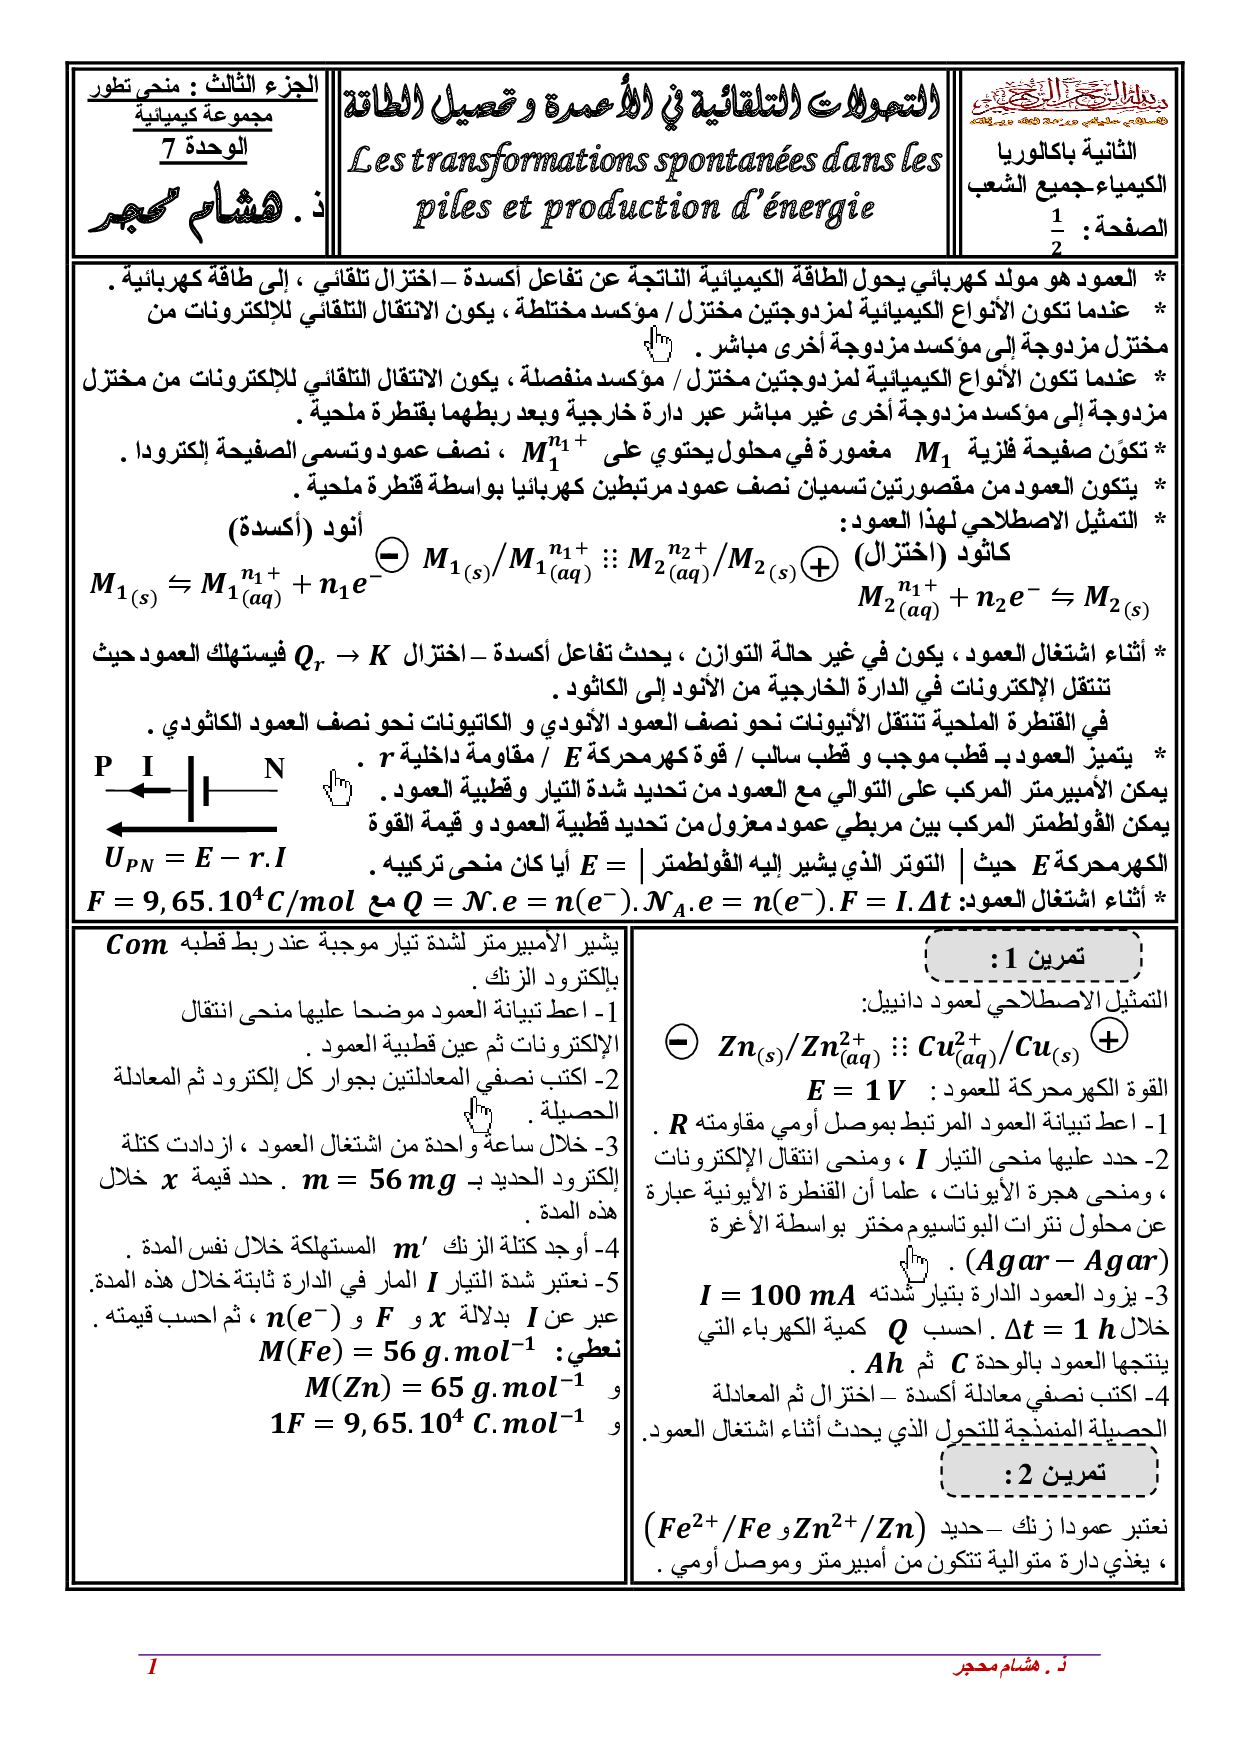 الثانية باكالوريا
الكيمياء-جميع الشعب
الصفحة : 1/2
التحولات التلقائية في الأعمدة وتحصيل الطاقة
Les transformations spontanées dans les
piles et production d'énergie
الجزء الثالث : منحى تطور
مجموعة كيميائية
الوحدة 7
ذ . هشام محجر
* العمود هو مولد كهربائي يحول الطاقة الكيميائية الناتجة عن تفاعل أكسدة – اختزال تلقائي ، إلى طاقة كهربائية .
* عندما تكون الأنواع الكيميائية لمزدوجتين مختزل / مؤكسد مختلطة ، يكون الانتقال التلقائي للإلكترونات من
مختزل مزدوجة إلى مؤكسد مزدوجة أخرى مباشر .
* عندما تكون الأنواع الكيميائية لمزدوجتين مختزل / مؤكسد منفصلة ، يكون الانتقال التلقائي للإلكترونات من مختزل
مزدوجة إلى مؤكسد مزدوجة أخرى غير مباشر عبر دارة خارجية وبعد ربطهما بقنطرة ملحية .
* تكوّن صفيحة فلزية M₁ مغمورة في محلول يحتوي على M₁ⁿ¹⁺ ، نصف عمود وتسمى الصفيحة إلكترودا .
* يتكون العمود من مقصورتين تسميان نصف عمود مرتبطين كهربائيا بواسطة قنطرة ملحية .
* التمثيل الاصطلاحي لهذا العمود :
أنود (أكسدة)
⊖ M₁(s)/M₁ⁿ¹⁺(aq) ⁝⁝ M₂ⁿ²⁺(aq)/M₂(s) ⊕
كاثود (اختزال)
M₁(s) ⇆ M₁ⁿ¹⁺(aq) + n₁e⁻
M₂ⁿ¹⁺(aq) + n₂e⁻ ⇆ M₂(s)
* أثناء اشتغال العمود ، يكون في غير حالة التوازن ، يحدث تفاعل أكسدة – اختزال Qᵣ → K فيستهلك العمود حيث
تنتقل الإلكترونات في الدارة الخارجية من الأنود إلى الكاثود .
في القنطرة الملحية تنتقل الأنيونات نحو نصف العمود الأنودي و الكاتيونات نحو نصف العمود الكاثودي .
* يتميز العمود بـ قطب موجب و قطب سالب / قوة كهرمحركة E / مقاومة داخلية r .
يمكن الأمبيرمتر المركب على التوالي مع العمود من تحديد شدة التيار وقطبية العمود .
يمكن الڤولطمتر المركب بين مربطي عمود معزول من تحديد قطبية العمود و قيمة القوة
الكهرمحركة E حيث | التوتر الذي يشير إليه الڤولطمتر | = E أيا كان منحى تركيبه .
P I N
U_PN = E − r.I
* أثناء اشتغال العمود: Q = 𝒩.e = n(e⁻).𝒩_A.e = n(e⁻).F = I.Δt مع F = 9,65.10⁴C/mol
تمرين 1 :
التمثيل الاصطلاحي لعمود دانييل:
⊖ Zn(s)/Zn²⁺(aq) ⁝⁝ Cu²⁺(aq)/Cu(s) ⊕
القوة الكهرمحركة للعمود : E = 1 V
1- اعط تبيانة العمود المرتبط بموصل أومي مقاومته R .
2- حدد عليها منحى التيار I ، ومنحى انتقال الإلكترونات
، ومنحى هجرة الأيونات ، علما أن القنطرة الأيونية عبارة
عن محلول نترات البوتاسيوم مختر بواسطة الأغرة
(Agar − Agar) .
3- يزود العمود الدارة بتيار شدته I = 100 mA
خلال Δt = 1 h . احسب Q كمية الكهرباء التي
ينتجها العمود بالوحدة C ثم Ah .
4- اكتب نصفي معادلة أكسدة – اختزال ثم المعادلة
الحصيلة المنمذجة للتحول الذي يحدث أثناء اشتغال العمود.
تمريـن 2 :
نعتبر عمودا زنك – حديد (Fe²⁺/Fe و Zn²⁺/Zn)
، يغذي دارة متوالية تتكون من أمبيرمتر وموصل أومي .
يشير الأمبيرمتر لشدة تيار موجبة عند ربط قطبه Com
بإلكترود الزنك .
1- اعط تبيانة العمود موضحا عليها منحى انتقال
الإلكترونات ثم عين قطبية العمود .
2- اكتب نصفي المعادلتين بجوار كل إلكترود ثم المعادلة
الحصيلة .
3- خلال ساعة واحدة من اشتغال العمود ، ازدادت كتلة
إلكترود الحديد بـ m = 56 mg . حدد قيمة x خلال
هذه المدة .
4- أوجد كتلة الزنك m′ المستهلكة خلال نفس المدة .
5- نعتبر شدة التيار I المار في الدارة ثابتة خلال هذه المدة.
عبر عن I بدلالة x و F و n(e⁻) ، ثم احسب قيمته .
نعطي : M(Fe) = 56 g.mol⁻¹
و M(Zn) = 65 g.mol⁻¹
و 1F = 9,65.10⁴ C.mol⁻¹
ذ . هشام محجر
1